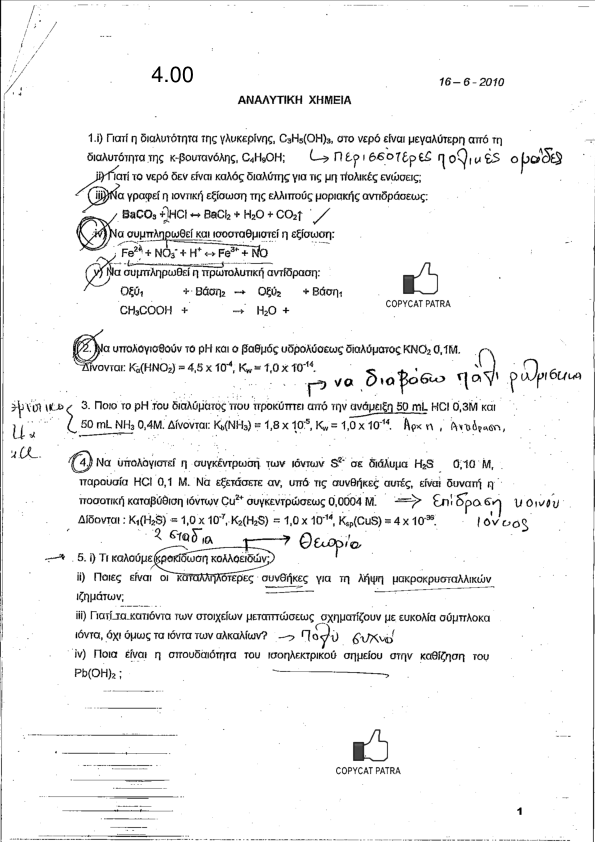 4.00
16 – 6 - 2010
ΑΝΑΛΥΤΙΚΗ ΧΗΜΕΙΑ
1.i) Γιατί η διαλυτότητα της γλυκερίνης, C₃H₅(OH)₃, στο νερό είναι μεγαλύτερη από τη
διαλυτότητα της κ-βουτανόλης, C₄H₉OH; Περισσότερες πολικές ομάδες
ii) Γιατί το νερό δεν είναι καλός διαλύτης για τις μη πολικές ενώσεις;
iii) Να γραφεί η ιοντική εξίσωση της ελλιπούς μοριακής αντιδράσεως:
BaCO₃ + HCl ↔ BaCl₂ + H₂O + CO₂↑
iv) Να συμπληρωθεί και ισοσταθμιστεί η εξίσωση:
Fe²⁺ + NO₃⁻ + H⁺ ↔ Fe³⁺ + NO
v) Να συμπληρωθεί η πρωτολυτική αντίδραση:
Οξύ₁ + Βάση₂ → Οξύ₂ + Βάση₁
CH₃COOH + → H₂O +
COPYCAT PATRA
2. Να υπολογισθούν το pH και ο βαθμός υδρολύσεως διαλύματος KNO₂ 0,1M.
Δίνονται: Kₐ(HNO₂) = 4,5 x 10⁻⁴, Kw = 1,0 x 10⁻¹⁴.
→ να διαβάσω πάλι
3. Ποιο το pH του διαλύματος που προκύπτει από την ανάμειξη 50 mL HCl 0,3M και
50 mL NH₃ 0,4M. Δίνονται: Kb(NH₃) = 1,8 x 10⁻⁵, Kw = 1,0 x 10⁻¹⁴. Αρχη, Αντδραση,
4. Να υπολογιστεί η συγκέντρωση των ιόντων S²⁻ σε διάλυμα H₂S 0,10 M,
παρουσία HCl 0,1 M. Να εξετάσετε αν, υπό τις συνθήκες αυτές, είναι δυνατή η
ποσοτική καταβύθιση ιόντων Cu²⁺ συγκεντρώσεως 0,0004 M. ⇒ Επίδραση κοινού
Δίδονται : K₁(H₂S) = 1,0 x 10⁻⁷, K₂(H₂S) = 1,0 x 10⁻¹⁴, Ksp(CuS) = 4 x 10⁻³⁶. Ιόντος
2 στάδια → Θεωρία
5. i) Τι καλούμε κροκίδωση κολλοειδών;
ii) Ποιες είναι οι καταλληλότερες συνθήκες για τη λήψη μακροκρυσταλλικών
ιζημάτων;
iii) Γιατί τα κατιόντα των στοιχείων μεταπτώσεως σχηματίζουν με ευκολία σύμπλοκα
ιόντα, όχι όμως τα ιόντα των αλκαλίων? → Πολύ συχνό
iv) Ποια είναι η σπουδαιότητα του ισοηλεκτρικού σημείου στην καθίζηση του
Pb(OH)₂ ;
COPYCAT PATRA
1